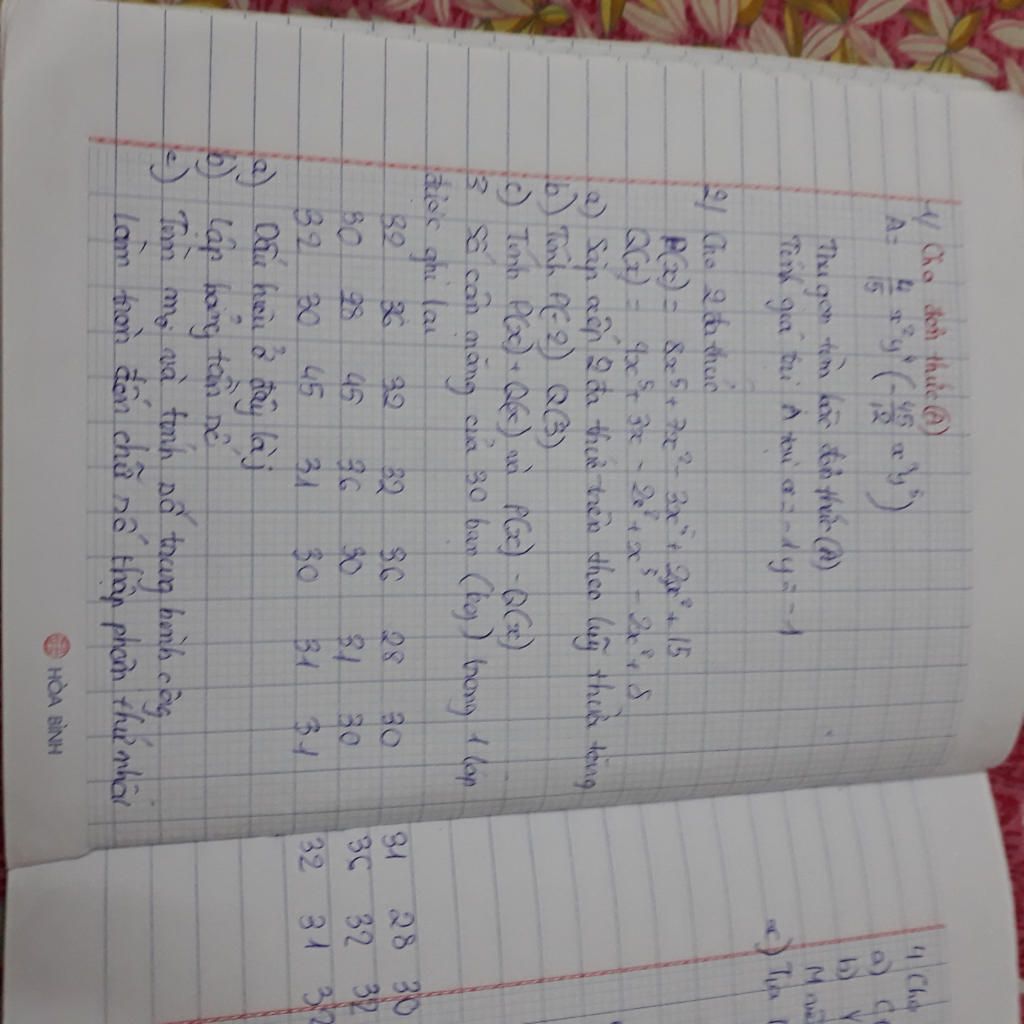 1/ Cho đơn thức (A)
A = 4/15 x²y⁴ (-45/12 x³y⁵)
Thu gọn tìm bậc đơn thức (A)
Tính giá trị A tại x = -1 y = -1
2/ Cho 2 đa thức
P(x) = 8x⁵ + 7x² - 3x⁵ + 2x² + 15
Q(x) = 4x⁵ + 3x - 2x² + x⁵ - 2x² + 8
a) Sắp xếp 2 đa thức trên theo luỹ thừa tăng
b) Tính P(-2) Q(3)
c) Tính P(x) + Q(x) và P(x) - Q(x)
3 Số cân nặng của 30 bạn (kg) trong 1 lớp
được ghi lại
32 36 32 32 36 28 30 31 28 30
30 28 45 36 30 31 30 36 32 32
32 30 45 31 30 31 31 32 31 32
a) Dấu hiệu ở đây là?
b) Lập bảng tần số
c) Tìm m₀ và tính số trung bình cộng
Làm tròn đến chữ số thập phân thứ nhất
HÒA BÌNH
4 Cho
a)
b)
M
c) Tìm